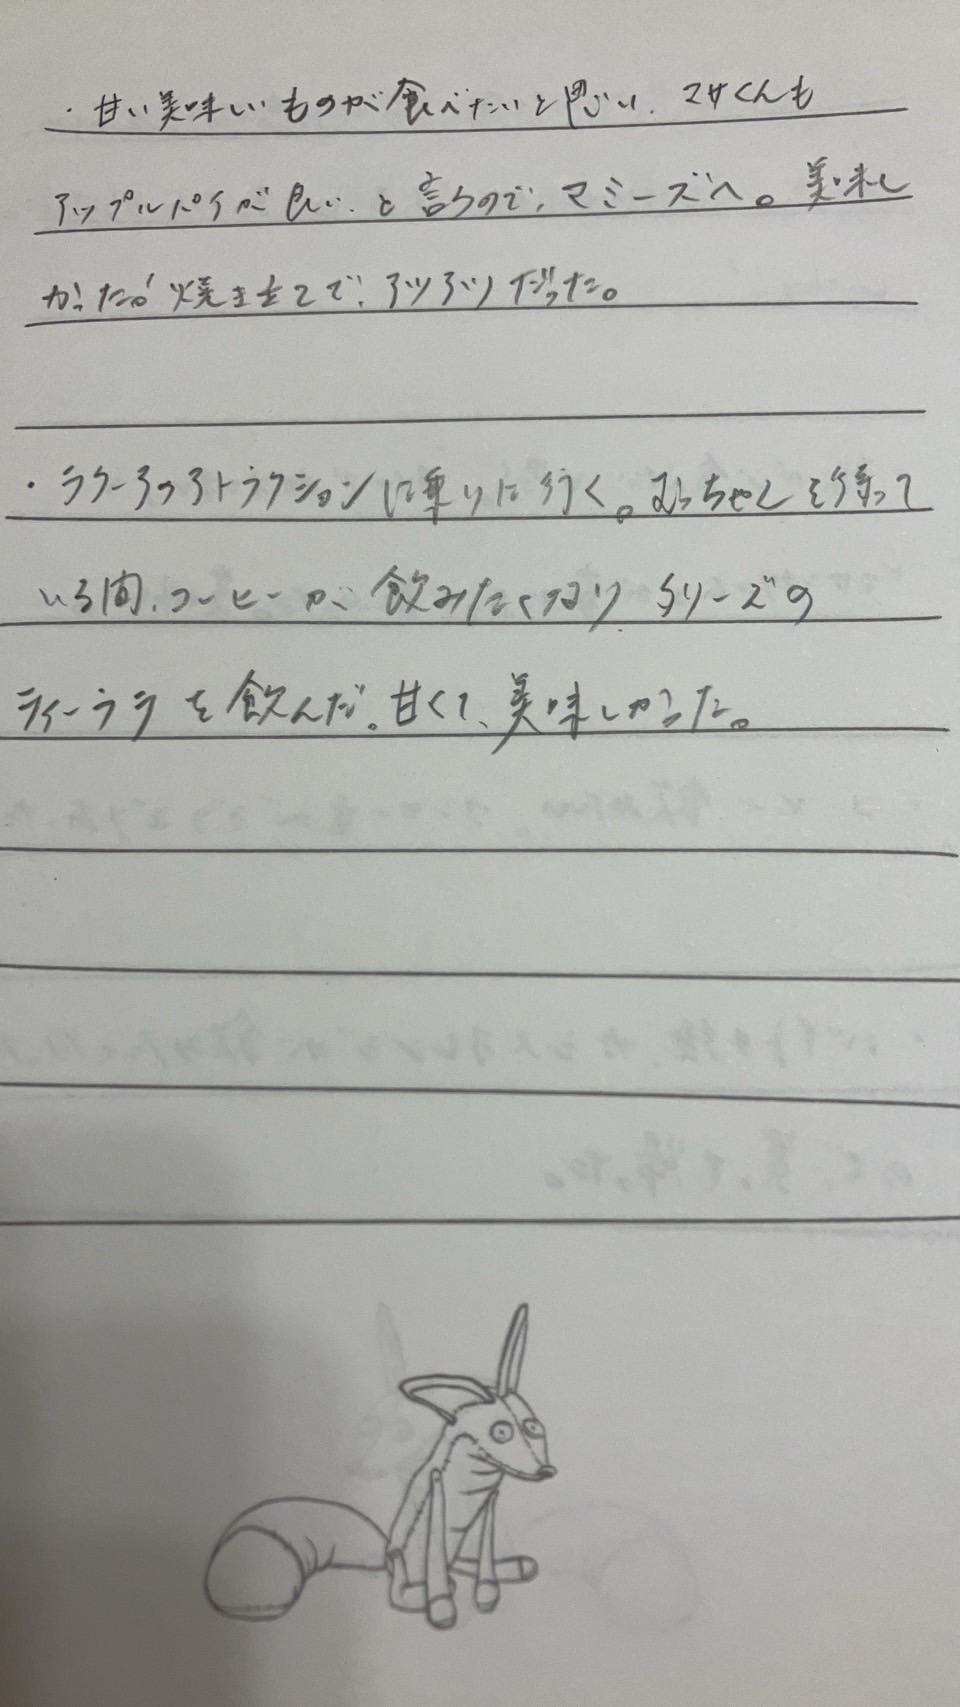 ・甘い美味しいものが食べたいと思い、マサくんも
アップルパイが良い、と言うので、マミーズへ。美味し
かった。焼き立てで、アツアツだった。
・ラクーアのアトラクションに乗りに行く。むっちゃんを待って
いる間、コーヒーが飲みたくなり タリーズの
ティーラテを飲んだ。甘くて、美味しかった。